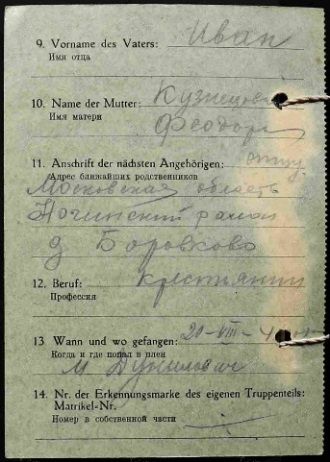 9. Vorname des Vaters: Иван
Имя отца
10. Name der Mutter: Кузнецова
Имя матери Феодора
11. Anschrift der nächsten Angehörigen: отцу
Адрес ближайших родственников
Московская область
район
д Боровково
12. Beruf: крестьянин
Профессия
13 Wann und wo gefangen: 20-VIII-
Когда и где попал в плен
М
14. Nr. der Erkennungsmarke des eigenen Truppenteils:
Matrikel-Nr.
Номер в собственной части